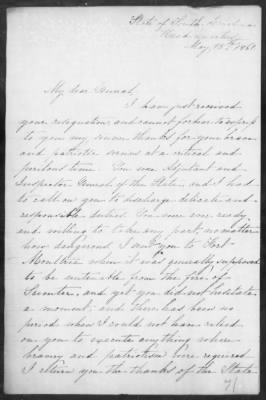 State of South Carolina
Head Quarters
May 15th 1861
My dear General,
I have just received
your resignation and cannot forbear to express
to you my sincere thanks for your brave
and patriotic services at a critical and
perilous time. You were Adjutant and
Inspector General of the State, and I had
to call on you to discharge delicate and
responsible duties. You were ever ready
and willing to take any part, no matter
how dangerous. I sent you to Fort
Moultrie when it was generally supposed
to be untenable from the fire of Fort
Sumter, and yet you did not hesitate
a moment; and there has been no
period when I could not have relied
on you to execute any thing where
bravery and patriotism were required
I return you the thanks of the State